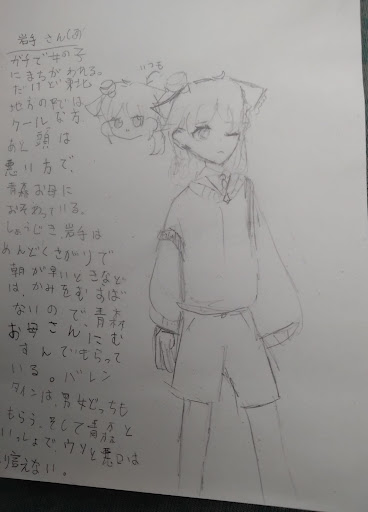 岩手 さん(♂)
ガチで女の子
にまちがわれる。
だけど東北
地方の中では
クールな方
あと 頭は
悪い方で、
青森お母に
おそわっている。
しょうじき、岩手は
めんどくさがりで
朝が早いときなど
は、かみをむすば
ないので、青森
お母さんにむ
すんでもらって
いる。バレン
タインは、男女どっちも
もらう。そして青森と
いっしょで、ウソと悪口は
言えない。
いつも